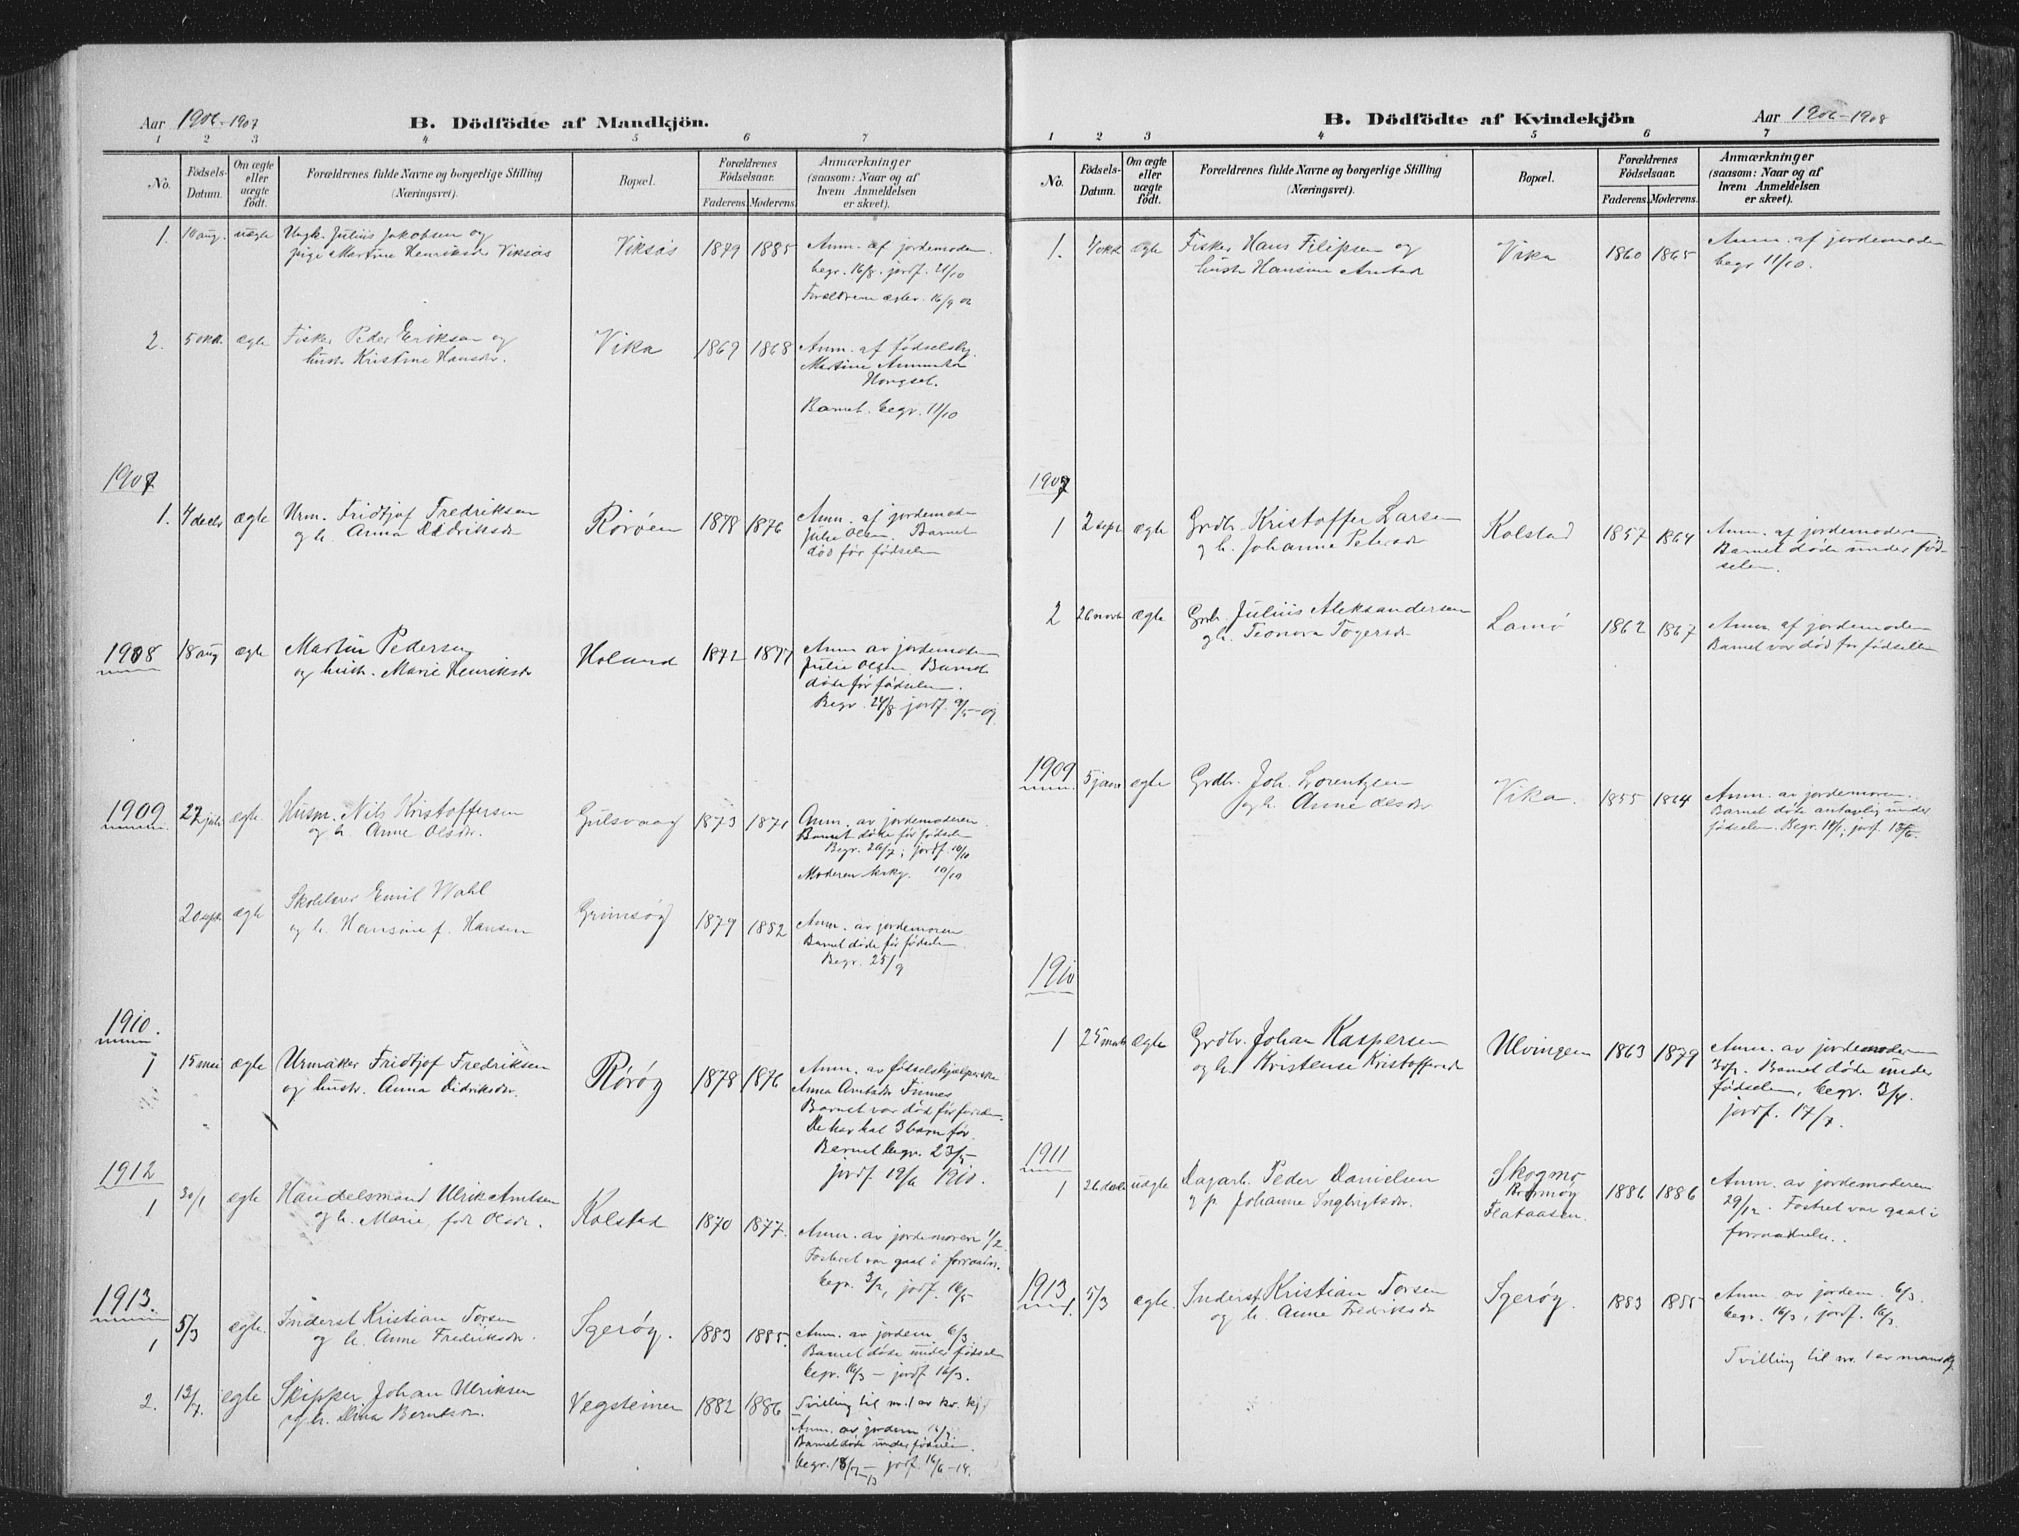 Aar 1906-1907
B. Dödfödte af Mandkjön.
1 2 3 4 5 6 7
No.
Födsels-Datum.
Om ægte eller uægte födt.
Forældrenes fulde Navne og borgerlige Stilling
(Næringsvei).
Bopæl.
Forældrenes Födselsaar.
Faderens Moderens
Anmærkninger
(saasom: Naar og af
hvem Anmeldelsen
er skeet).
1. 10 aug. uægte Ungk. Julius Jakobsen og Viksås 1879 1885 Anm. af jordemoden.
pige Martine Henriksdr Viksås
begr. 16/8. jordf. 21/10
Forældrene ægtev. 16/9 06
2. 5 okt. ægte Fisker Peder Eriksen og Vika 1869 1868 Anm. af fødselshj.
hustr. Kristine Hansdr.
Martine
Barnet begr. 11/10
1907
1. 4 decbr ægte Urm. Fridtjof Fredriksen Rörøen 1878 1876 Anm. af jordemod.
og h. Anna Didriksdr
Julie Olsen. Barnet
død før fødselen
1908 18 aug ægte Martin Pedersen Holand 1872 1877 Anm av jordemoderen
og hustr. Marie Henriksdr
Julie Olsen Barnet
døde før fødselen.
Begr. 24/8 jordf. 9/5-09
1909 27 juli ægte Husm. Nils Kristoffersen Gulsvaag 1873 1871 Anm. av jordemoderen.
og h. Anne Olsdr.
Barnet døde før fødselen
Begr. 26/7; jordf. 10/10
Moderen kirkg. 10/10
20 sept. ægte Skolelærer Emil Wahl Grimsøy 1879 1882 Anm. av jordemoren
og h. Hansine f. Hansen
Barnet døde før fødselen.
Begr. 25/9
1910.
1 15 mai ægte Urmaker Fridtjof Fredriksen Rörøy 1878 1876 Anm. av fødselshjælperske
og hustr. Anna Didriksdr.
Anna Arntsdr Finnes
Barnet var død før
De har hat 3 barn før.
Barnet begr. 23/5
jordf 19/6 1910.
1912
1 30/1 ægte Handelsmand Ulrik Arntsen Kolstad 1870 1877.
og h. Marie, født Olsdr.
Anm. av jordemoren 1/2
Fosteret var gaat i forraatn.
begr. 3/2, jordf. 16/5
1913.
1 5/3 ægte Inderst Kristian Torsen Sgerøy. 1883 1885. Anm. av jordem 6/3
og h. Anne Fredriksdr.
Barnet døde under fødselen
begr. 16/3 – jordf 16/3.
2. 12/7. ægte Skipper Johan Ulriksen Vegsteinen 1882 1886 Tvilling til nr. 1 av kv. kj
og h. Dina Berntsdr.
Anm. av jordem
Barnet døde under fødselen.
begr. 18/7 – 13 jordf. 16/6-14.
B. Dödfödte af Kvindekjön
Aar 1906-1908
1 2 3 4 5 6 7
No.
Födsels-Datum.
Om ægte eller uægte födt.
Forældrenes fulde Navne og borgerlige Stilling
(Næringsvei).
Bopæl.
Forældrenes Födselsaar.
Faderens Moderens
Anmærkninger
(saasom: Naar og af
hvem Anmeldelsen
er skeet).
1. 1/okt ægte Fisker Hans Filipsen og Vika 1860 1865 Anm. af jordemoden
hustr Hansine Arntsdr
begr 11/10.
1907
1 2 sept ægte Grdbr. Kristoffer Larsen Kolstad 1857 1864 Anm. af jordemoderen
og h. Johanne Petersdr
Barnet døde under fød-
selen.
2 26 novbr ægte Grdb. Julius Aleksandersen Lamø 1862 1867 Anm af jordemoderen
og h. Leonora Togersdr
Barnet var død før fødselen
1909 5 jan ægte Grdbr. Joh. Lorentzen Vika. 1855 1864 Anm. av jordemoren.
og h. Anne Olsdr
Barnet døde antagelig under
fødselen. Begr. 11/1; jordf. 13/6.
1910
1 25 mars ægte Grdbr. Johan Kaspersen Ulvingen 1863 1879 Anm. av jordemoderen
og h. Kristense Kristoffersdr
30/3. Barnet døde under
fødselen, begr. 3/4.
jordf. 17/7.
1911
1 26 dec. uægte Dagarb. Peder Danielsen Skogmo 1886 1886 Anm. av jordemoderen
og p. Johanne Ingbrigtsdr.
Flataasen.
29/12. Fostret var gaat i
forraadnelse.
1913
1 5/3 ægte. Inderst Kristian Torsen Sgerøy. 1883 1885 Anm. av jordem. 6/3.
og h. Anne Fredriksdr
begr. 16/3, jordf. 16/3.
Tvilling til nr. 1 av mandkj.